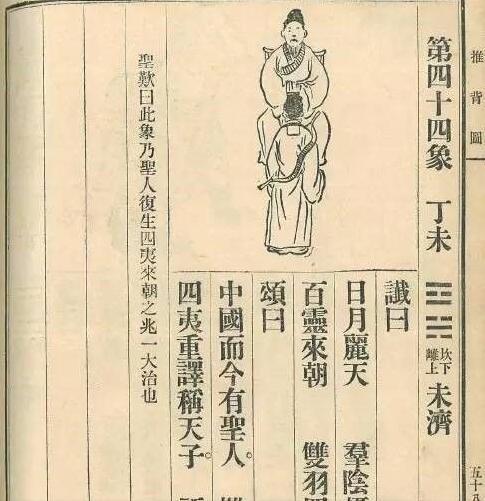 推背圖 五十
第四十四象 丁未 坎下離上 未濟
讖曰
日月麗天 羣陰
百靈來朝 雙羽
頌曰
中國而今有聖人。
四夷重譯稱天子。
聖歎曰此象乃聖人復生四夷來朝之兆一大治也